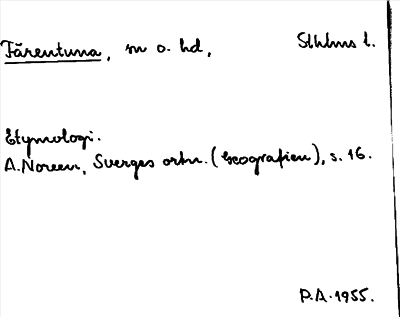 Färentuna, sn o. hd, Sthlms l.
Etymologi.
A. Noreen, Sveriges ortn. (Geografien), s. 16.
P.A. 1955.